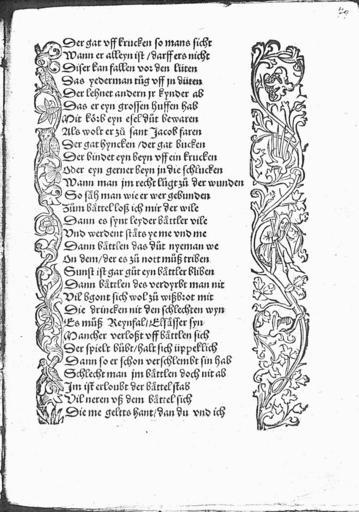 Der gat vff krucken so mans sicht
Wann er alleyn ist / darff ers nicht
Diser kan fallen vor den lüten
Das yederman tüg vff jn düten
Der lehnet andern jr kynder ab
Das er eyn grossen huffen hab
Mit körb eyn esel düt bewaren
Als wolt er zů sant Jacob faren
Der gat hyncken / der gat bucken
Der bindet eyn beyn vff ein krucken
Oder eyn gerner beyn jn die schlucken
Wann man jm recht lůgt zů der wunden
So säh man wie er wer gebunden
Zům bättel loß ich mir der wile
Dann es synt leyder bättler vile
Vnd werdent stäts ye me vnd me
Dann bättlen das důt nyeman we
On dem / der es zů nott můß triben
Sunst ist gar gůt eyn bättler bliben
Dann bättlen des verdyrbt man nit
Vil bgont sich wol zů wißbrot mit
Die drincken nit den schlechten wyn
Es můß Reynfal / Elsässer syn
Mancher verloßt vff bättlen sich
Der spielt / bůbt / halt sich üppeklich
Dann so er schon verschlembt sin hab
Schlecht man jm bättlen doch nit ab
Im ist erloubt der bättel stab
Vil neren vß dem bättel sich
Die me geltts hant / dan du vnd ich